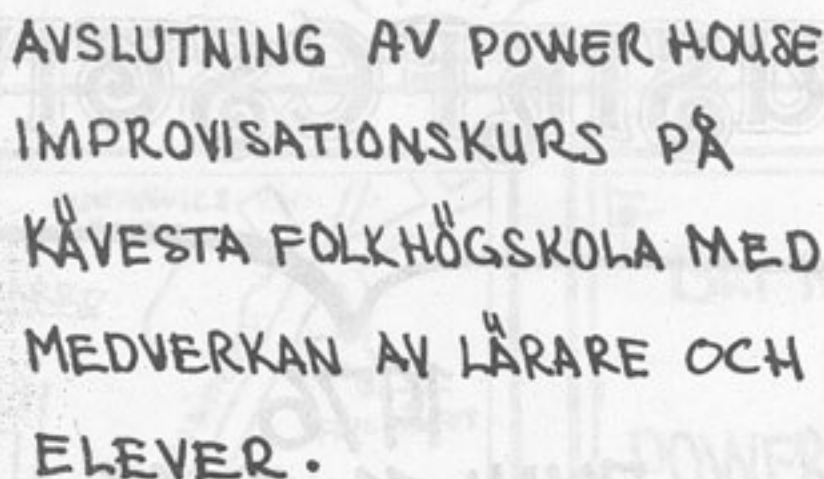 AVSLUTNING AV POWER HOUSE
IMPROVISATIONSKURS PÅ
KÄVESTA FOLKHÖGSKOLA MED
MEDVERKAN AV LÄRARE OCH
ELEVER.